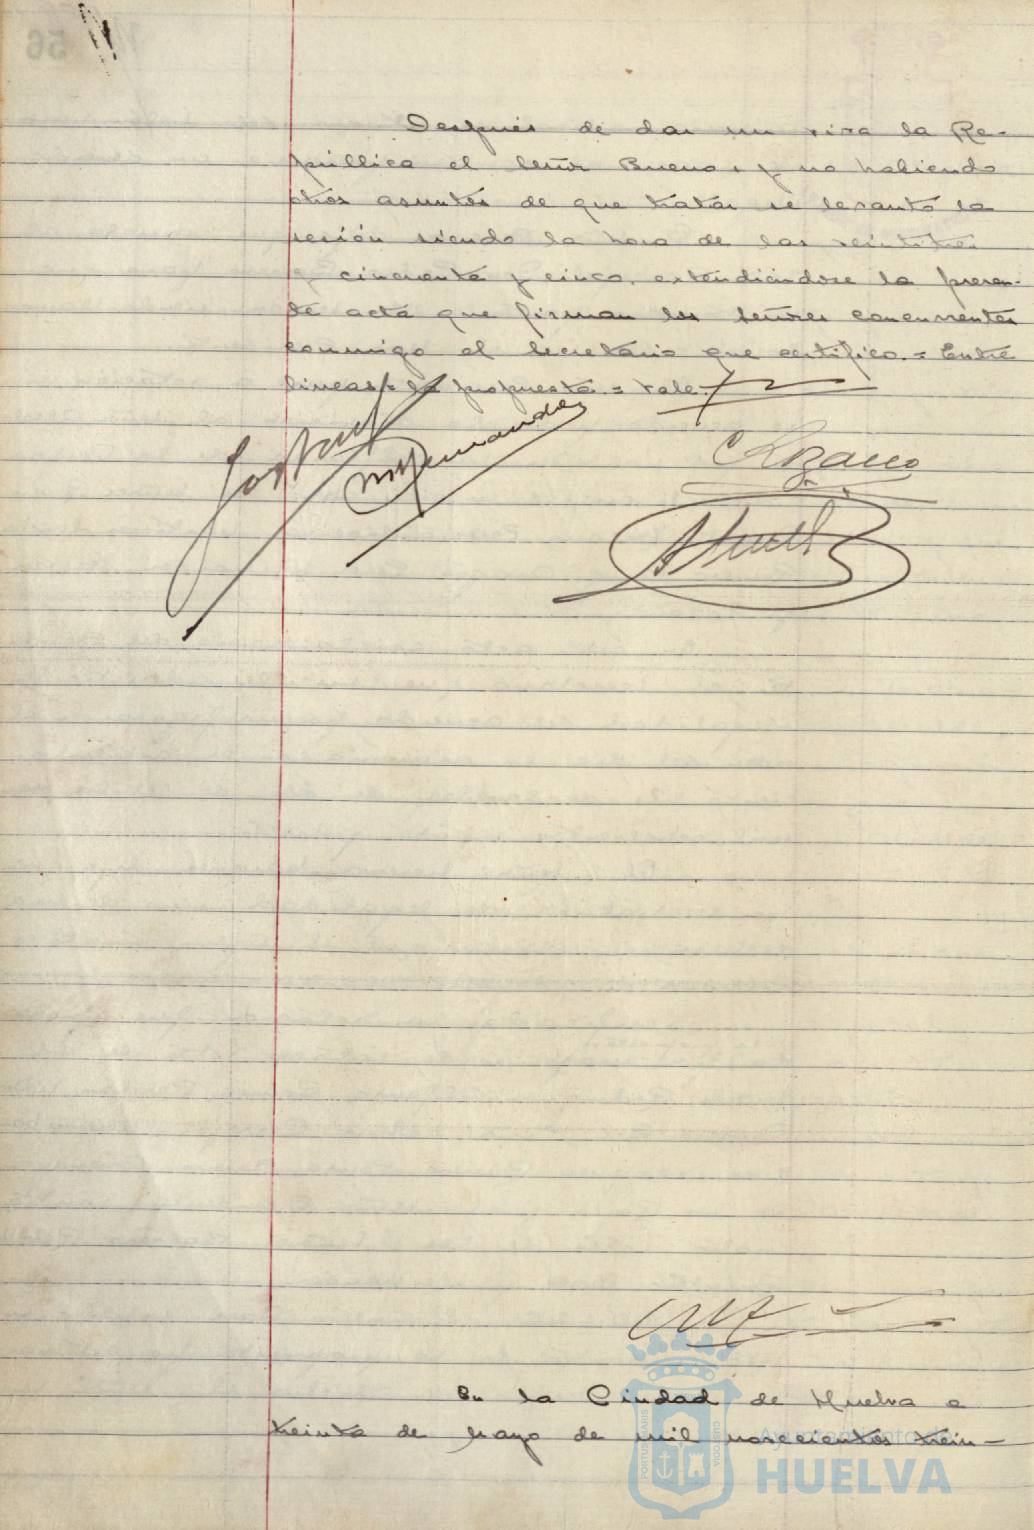 Después de dar un viva la Re-
pública el Señor Bueno, y no habiendo
otros asuntos de que tratar se levantó la
sesión siendo la hora de las veintitres
y cincuenta y cinco, extendiéndose la presen-
te acta que firman los Señores concurrentes
conmigo el Secretario que certifico. = Entre
lineas: la propuesta. = Vale.
M Hernandez
C Lozano
En la Ciudad de Huelva a
treinta de Mayo de mil novecientos trein-
Ayuntamiento de
HUELVA